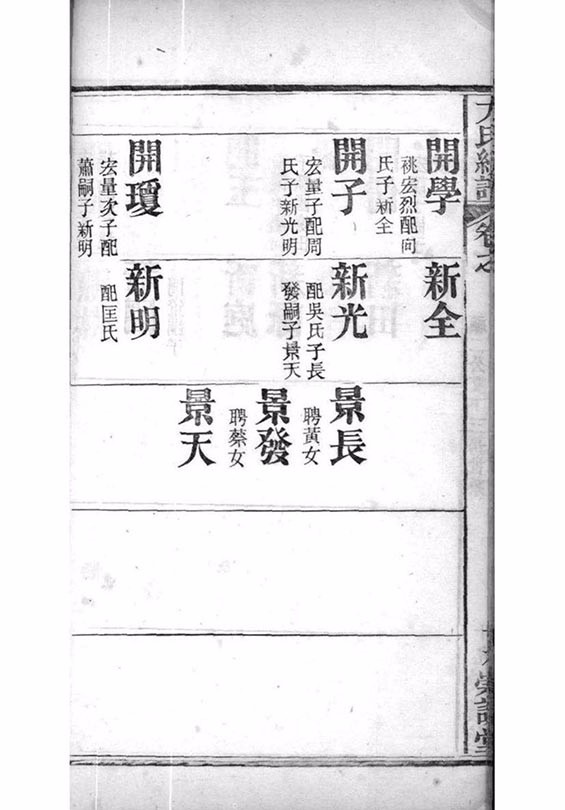 開學
祧宏烈配向
氏子新全
開子
宏量子配周
氏子新光明
開瓊
宏量次子配
蕭嗣子新明
新全
新光
配吳氏子長
發嗣子景天
新明
配匡氏
景長
聘黃女
景發
聘蔡女
景天